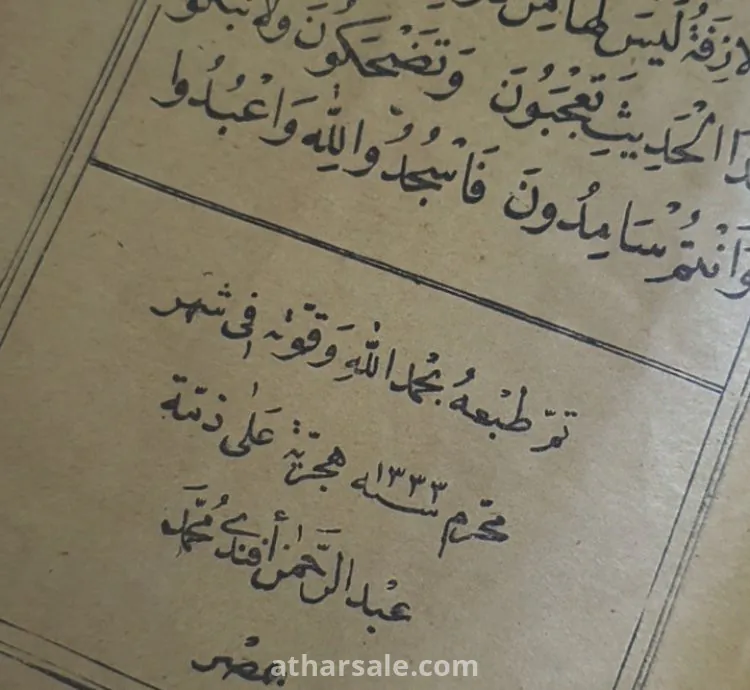 لازِفَةُ لَيْسَ لَهَا مِنْ
ذَا الْحَدِيثِ تَعْجَبُونَ وَتَضْحَكُونَ وَلَا تَبْكُو
وَانْتُمْ سَامِدُونَ فَاسْجُدُوا لِلّٰهِ وَاعْبُدُوا
تمّ طَبْعهُ بحُمد اللّٰهِ وَقوّته فى شهر
محرّم سنه ١٣٣٣ هجرّية عَلى ذمّة
عبْد الرّحمٰن أفندى مُحمّد
بمصْر
atharsale.com